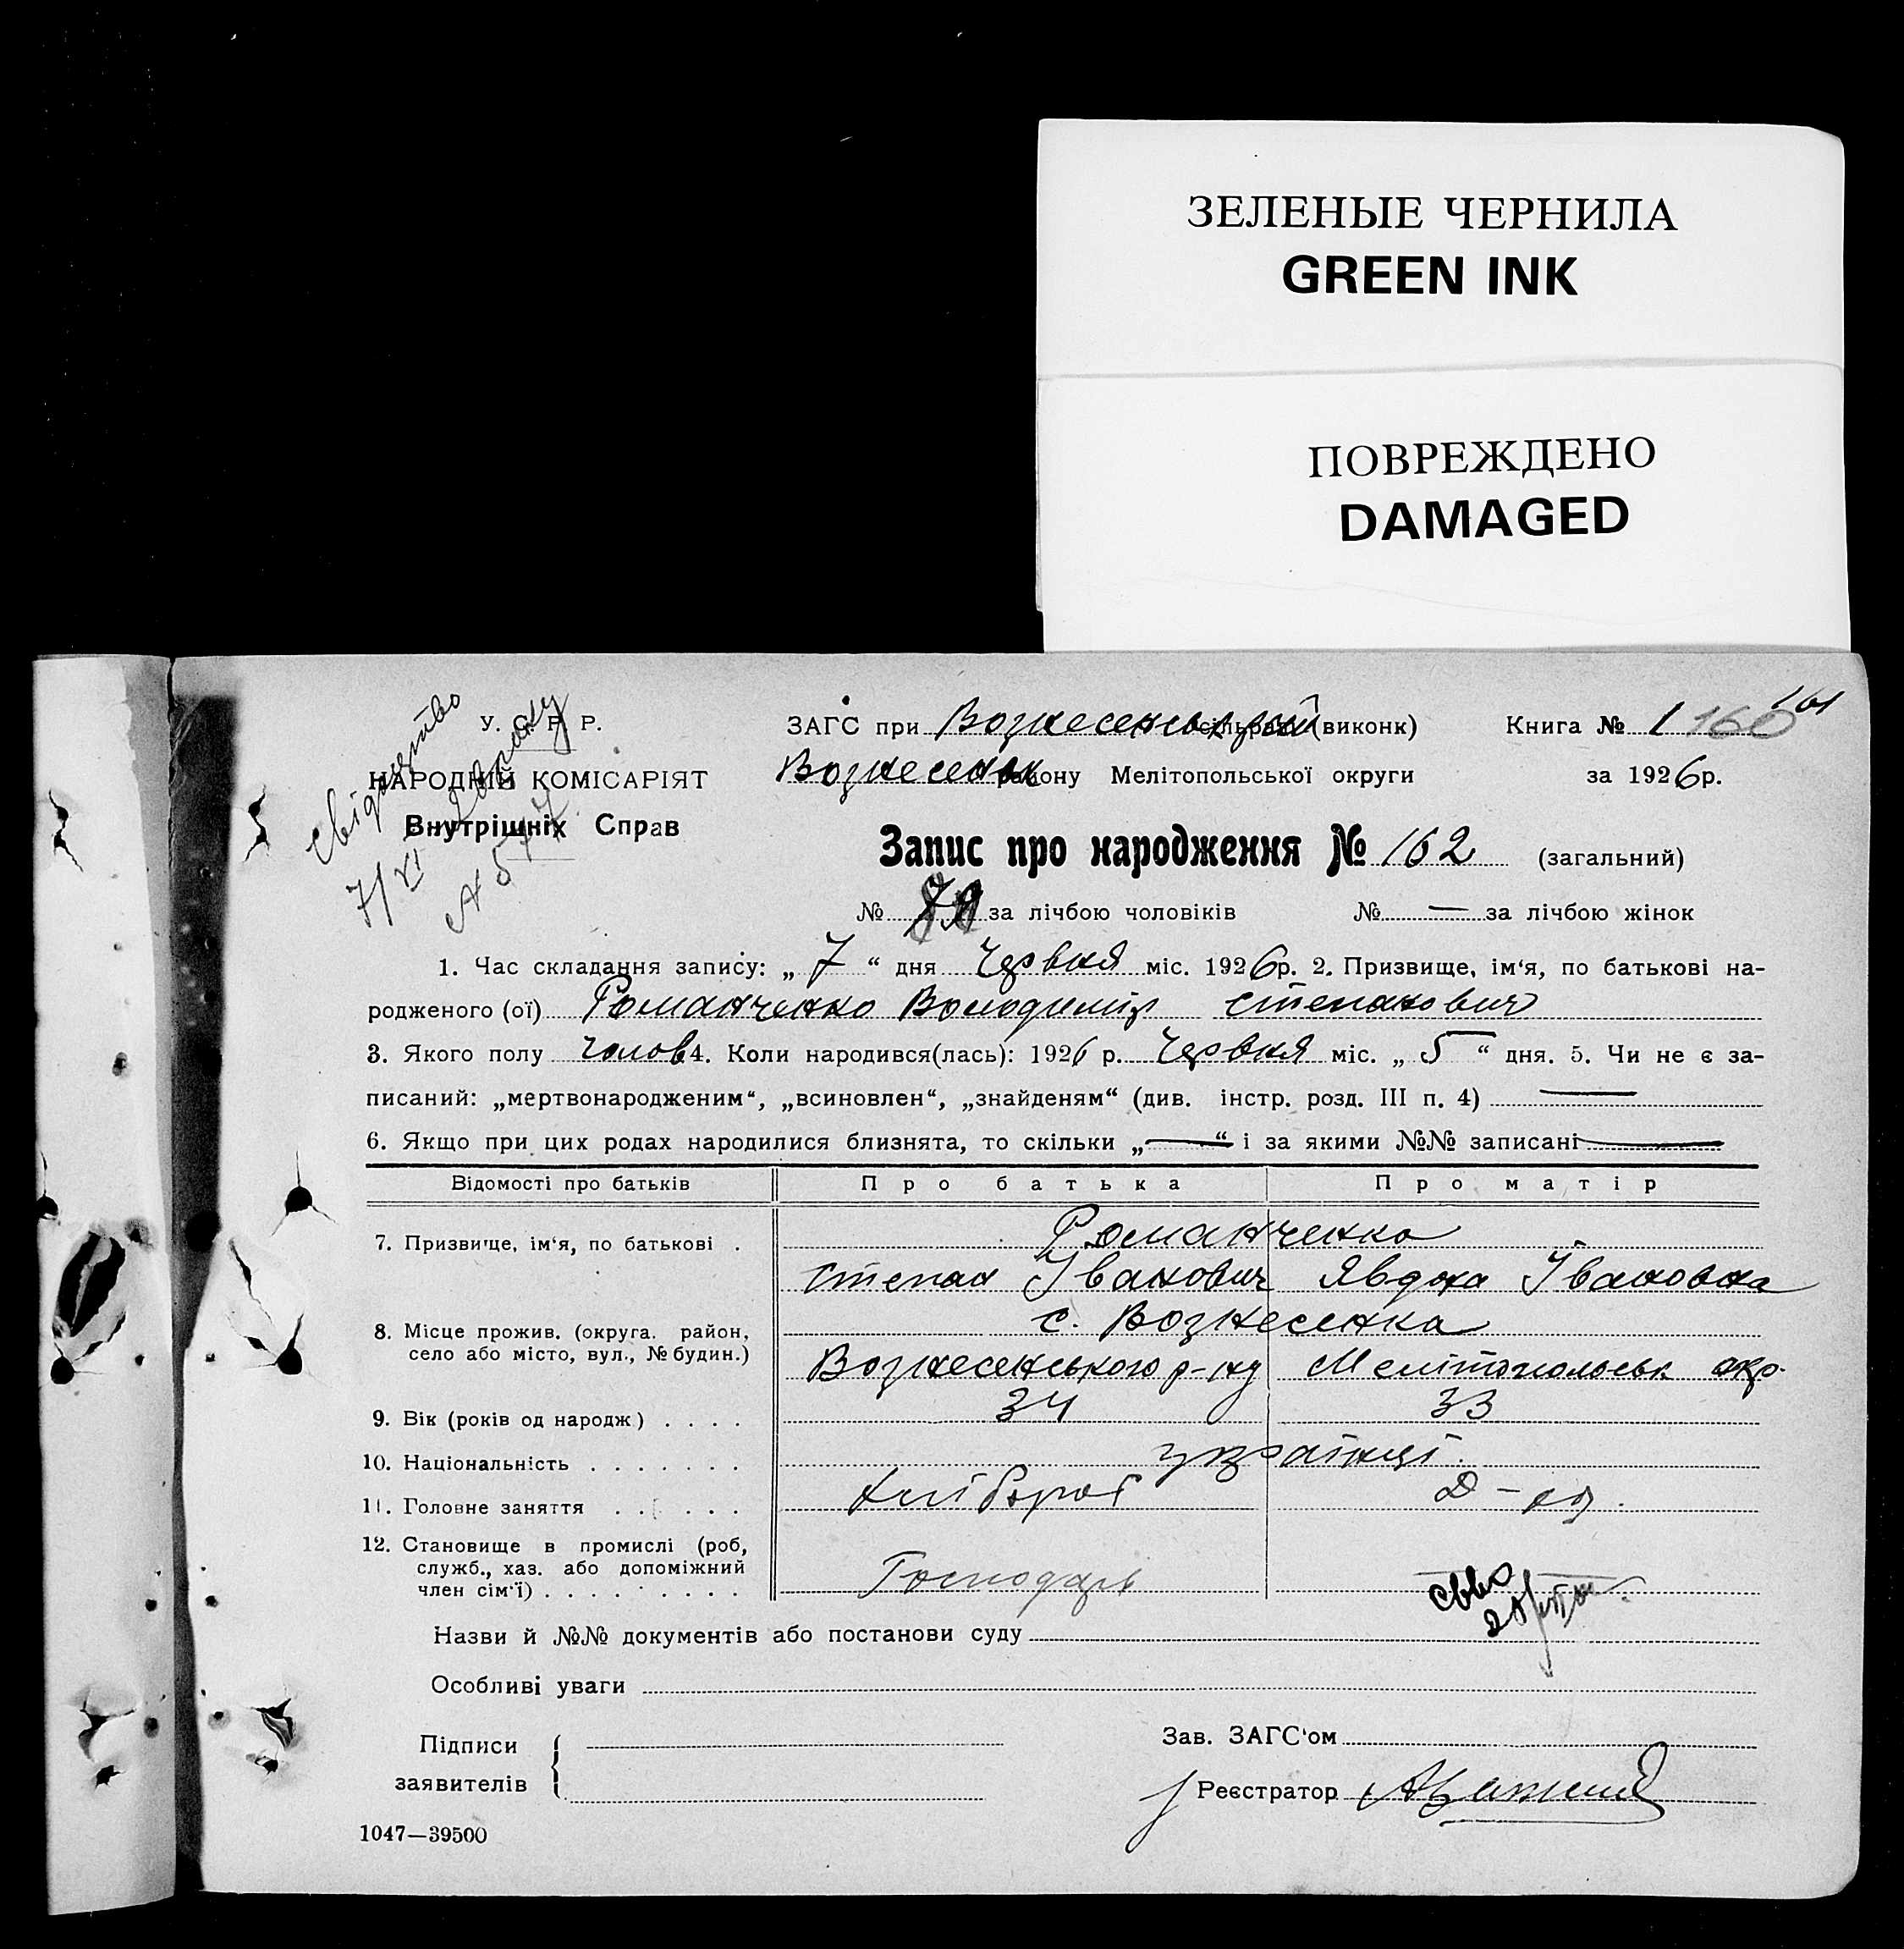 ЗЕЛЕНЫЕ ЧЕРНИЛА
GREEN INK
ПОВРЕЖДЕНО
DAMAGED
свідоцтво
7/VI
У. С. Р. Р.
НАРОДНІЙ КОМІСАРІЯТ
Внутрішніх Справ
ЗАГС при Вознесенськ (виконк)
Книга № 1 160 161
Вознесенськ району Мелітопольської округи
за 1926 р.
Запис про народження № 162 (загальний)
№ за лічбою чоловіків № — за лічбою жінок
1. Час складання запису: „ 7 “ дня Червня міс. 1926 р. 2. Призвище, ім‘я, по батькові на-
родженого (ої) Романченко Володимір Степанович
3. Якого полу чолов 4. Коли народився(лась): 1926 р. Червня міс. „ 5 “ дня. 5. Чи не є за-
писаний: „мертвонародженим“, „всиновлен“, „знайденям“ (див. інстр. розд. III п. 4) —
6. Якщо при цих родах народилися близнята, то скільки „ — “ і за якими №№ записані —
Відомості про батьків
Про батька
Про матір
7. Призвище, ім‘я, по батькові .
Романченко
Степан Іванович
Явдоха Івановна
8. Місце прожив. (округа. район,
село або місто, вул., № будин.)
с. Вознесенка
Вознесенського р-ну Мелітопольськ окр.
9. Вік (років од народж) . . . .
34
33
10. Національність . . . . . . .
українці.
11. Головне заняття . . . . . .
Хлібороб
Д-ка
12. Становище в промислі (роб,
служб., хаз. або допоміжний
член сім‘ї) . . . . . . . . .
Господарь
Назви й №№ документів або постанови суду
Особливі уваги
Підписи
заявителів
Зав. ЗАГС‘ом
Реєстратор
1047—39500